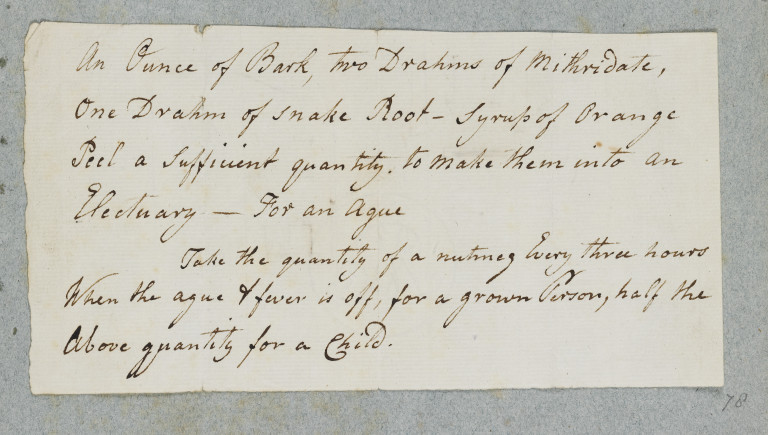 An Ounce of Bark, two Drahms of Mithridate,
One Drahm of snake Root - Syrup of Orange
Peel a Sufficient quantity. to make them into an
Electuary — For an Ague
Take the quantity of a nutmeg Every three hours
When the ague & fever is off, for a grown Person, half the
Above quantity for a Child.
78